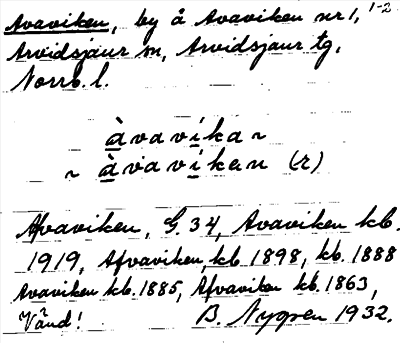 Avaviken, by å Avaviken nr 1, 1-2
Arvidsjaur sn, Arvidsjaur tg,
Norrb. l.
àvavika ~
~ àvaviken (r)
Afvaviken, G. 34, Avaviken kb.
1919, Afvaviken, kb. 1898, kb. 1888
Avaviken kb. 1885, Afvaviken kb. 1863,
Vänd! B. Nygren 1932.